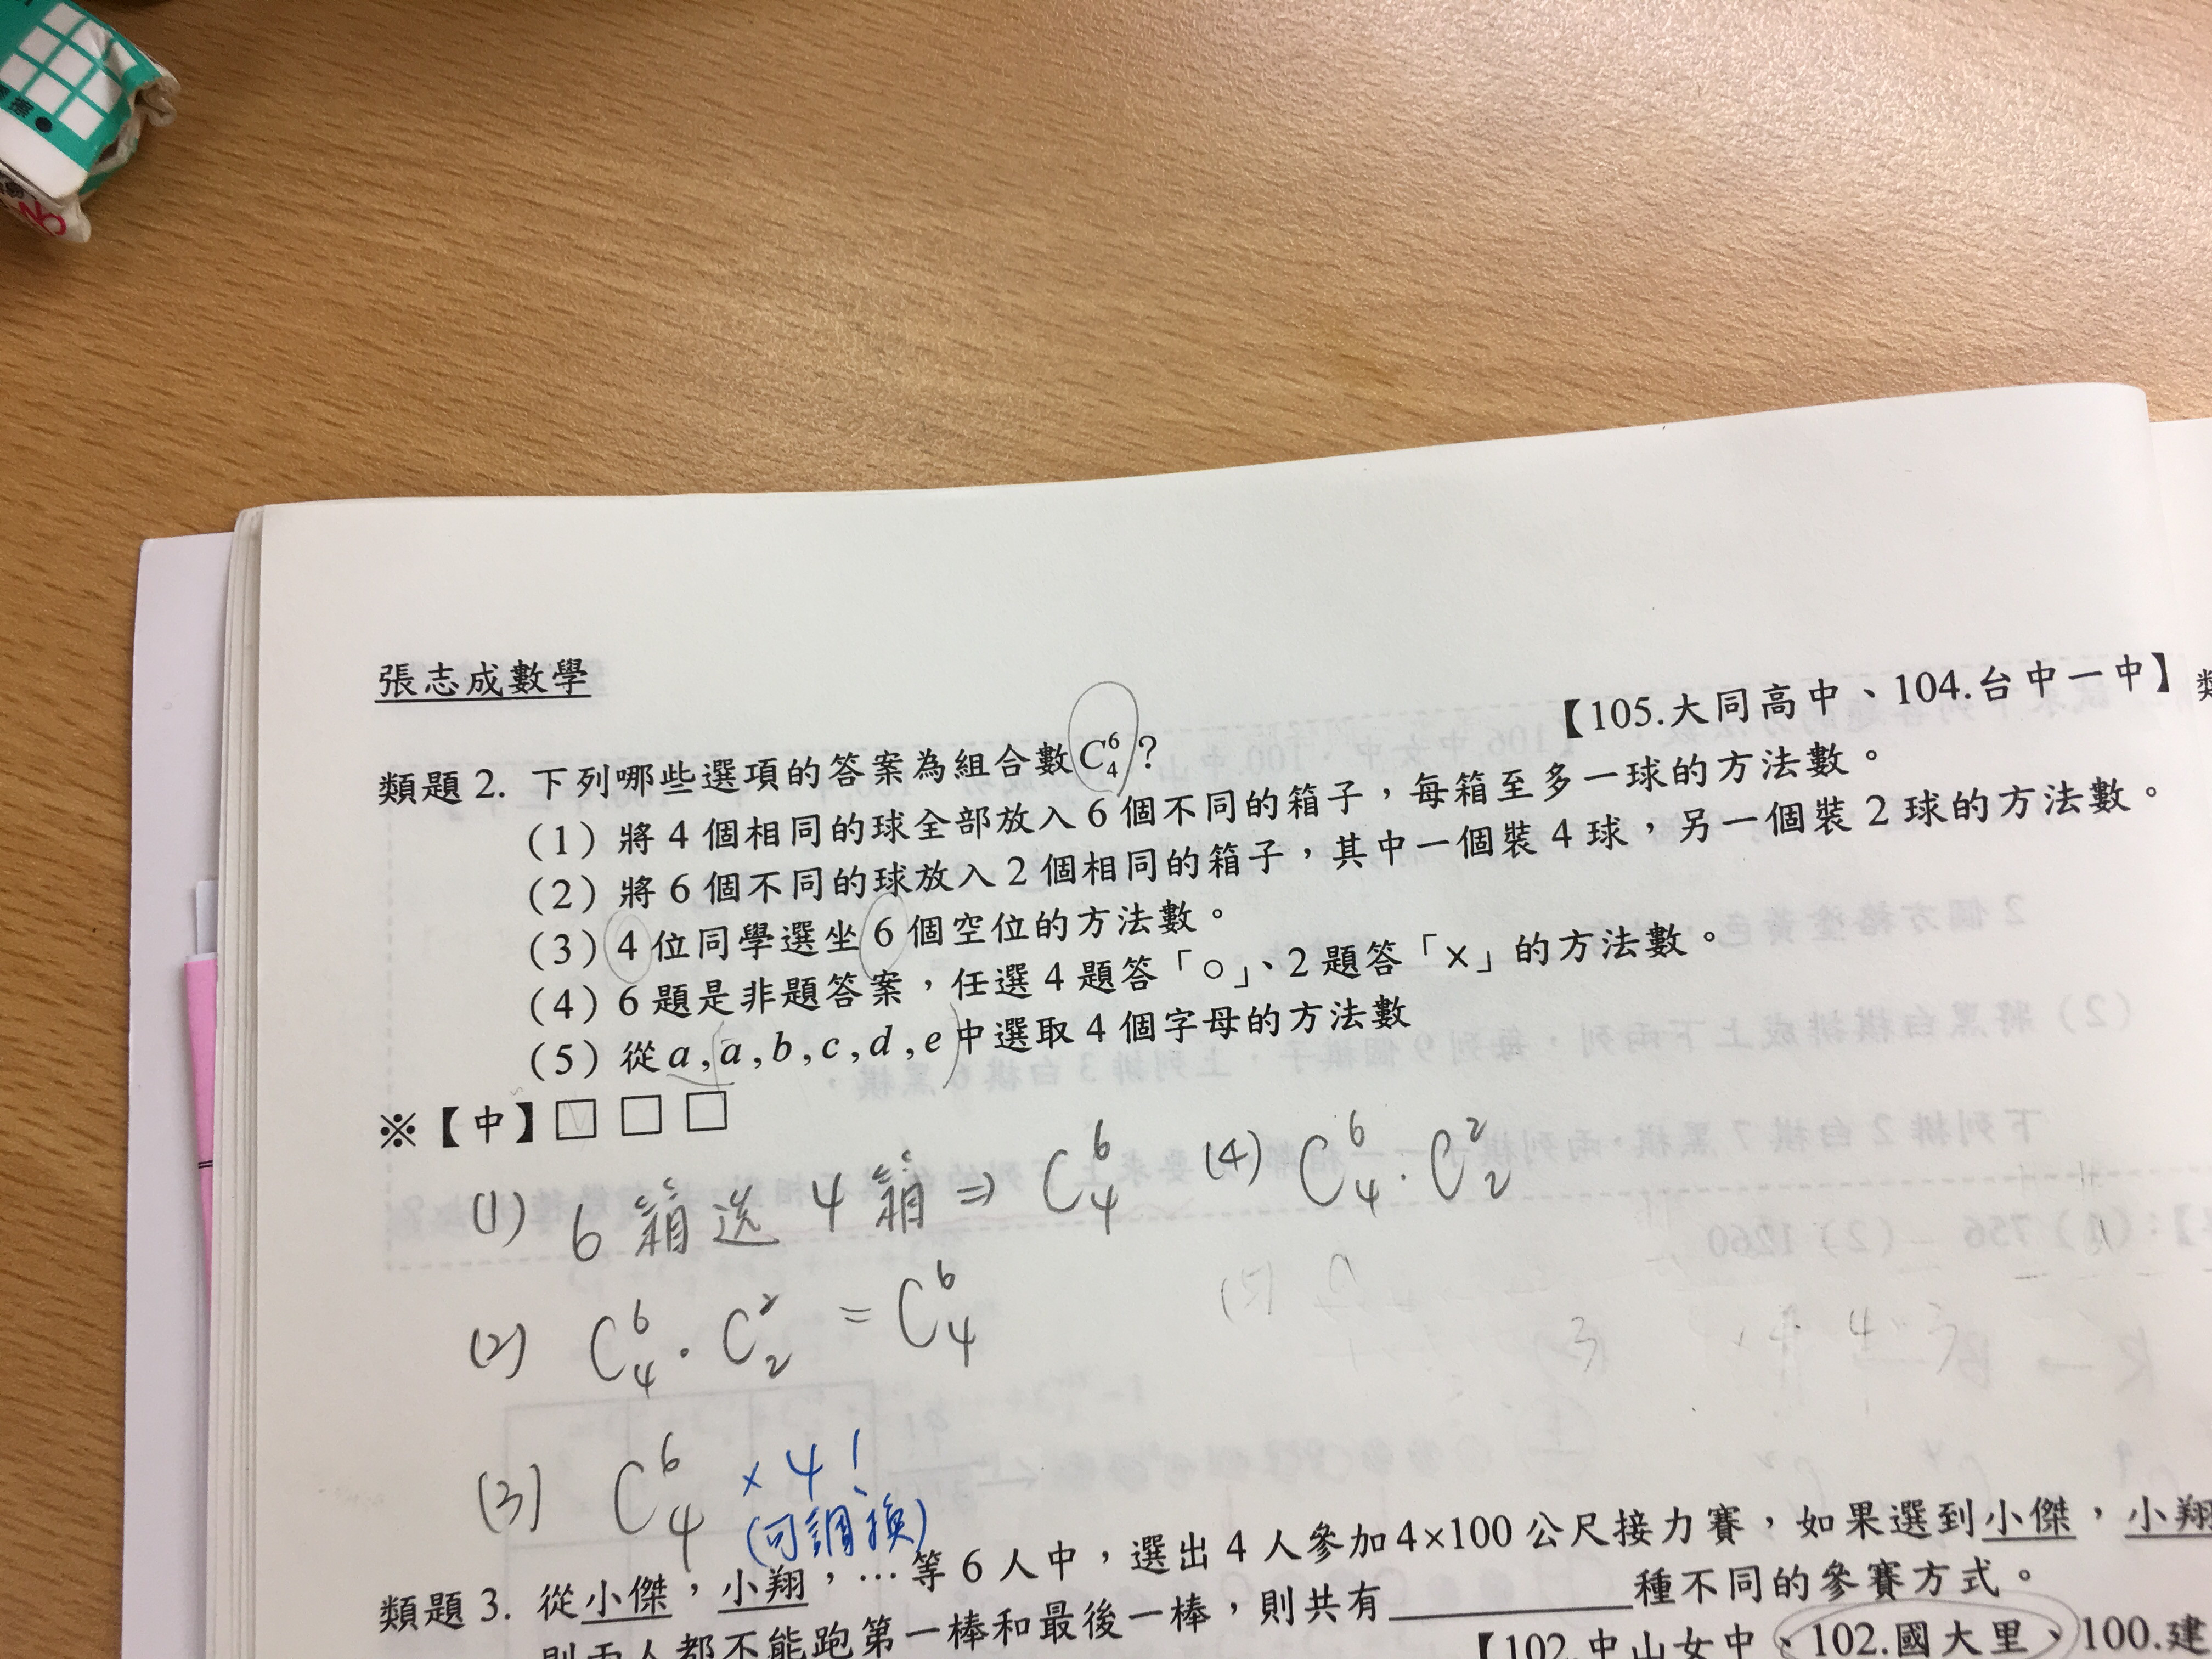 張志成數學
【105.大同高中、104.台中一中】
類題 2. 下列哪些選項的答案為組合數 C⁶₄？
(1) 將 4 個相同的球全部放入 6 個不同的箱子，每箱至多一球的方法數。
(2) 將 6 個不同的球放入 2 個相同的箱子，其中一個裝 4 球，另一個裝 2 球的方法數。
(3) 4 位同學選坐 6 個空位的方法數。
(4) 6 題是非題答案，任選 4 題答「○」、2 題答「×」的方法數。
(5) 從 a , a , b , c , d , e 中選取 4 個字母的方法數
※【中】□ □ □
(1) 6 箱选 4 箱 ⇒ C⁶₄
(4) C⁶₄ · C²₂
(2) C⁶₄ · C²₂ = C⁶₄
(3) C⁶₄ × 4!
(可調換)
類題 3. 從小傑，小翔，…等 6 人中，選出 4 人參加 4×100 公尺接力賽，如果選到小傑，小翔
則兩人都不能跑第一棒和最後一棒，則共有 種不同的參賽方式。
【102.中山女中、102.國大里、100.建